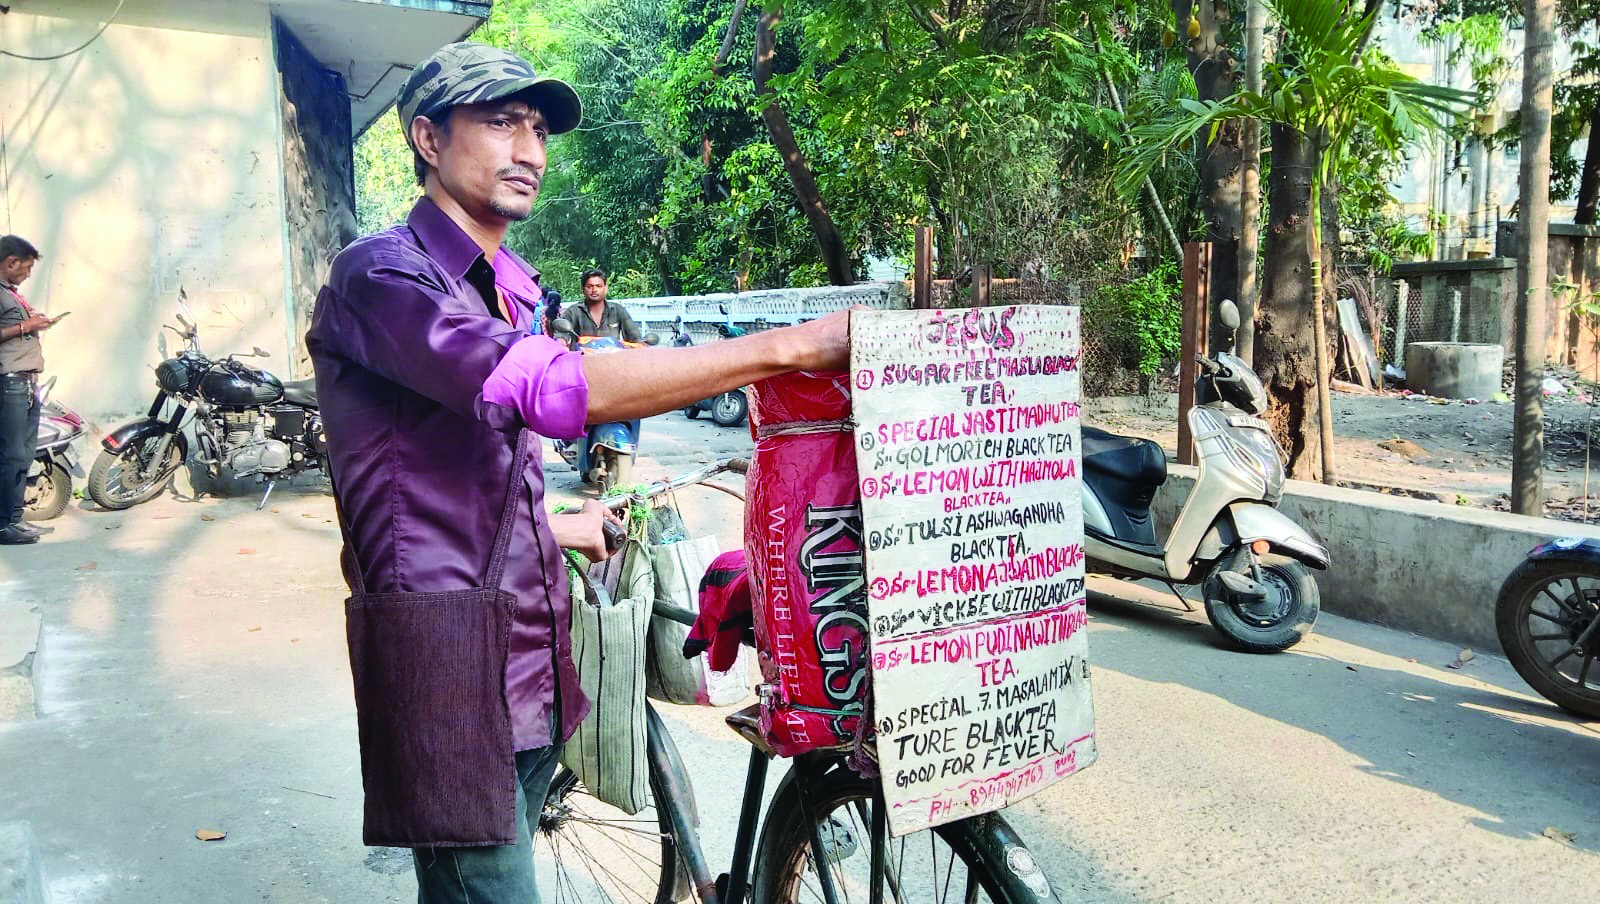 JESUS
① SUGAR FREE MASLA BLACK
TEA,,
② SPECIAL JASTIMADHU TEA
S" GOLMORICH BLACK TEA
③ Sp" LEMON WITH HAJMOLA
BLACK TEA,,
④ Sp" TULSI ASHWAGANDHA
BLACK TEA,
⑤ Sp" LEMON AJWAIN BLACK TEA
⑥ Sp" VICKSE WITH BLACK TEA
⑦ Sp" LEMON PUDINA WITH BLACK
TEA.
⑧ SPECIAL .7. MASALA MIX
TURE BLACK TEA
GOOD FOR FEVER,,
PH- 8944947769
KINGS
WHERE LIFE ME